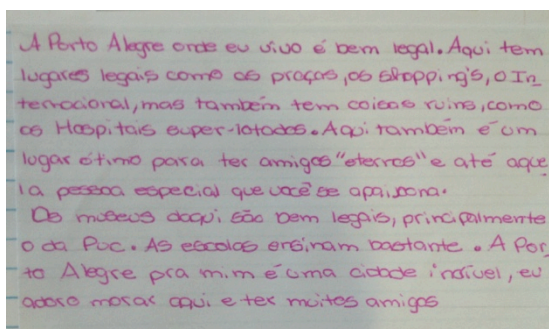 A Porto Alegre onde eu vivo é bem legal. Aqui tem
lugares legais como as praças, os shopping's, o In
ternacional, mas também tem coisas ruins, como
os Hospitais super-lotados. Aqui também é um
lugar ótimo para ter amigos "eternos" e até aque
la pessoa especial que você se apaixona.
Os museus daqui são bem legais, principalmente
o da Puc. As escolas ensinam bastante. A Por
to Alegre pra mim é uma cidade incrível, eu
adoro morar aqui e ter muitos amigos